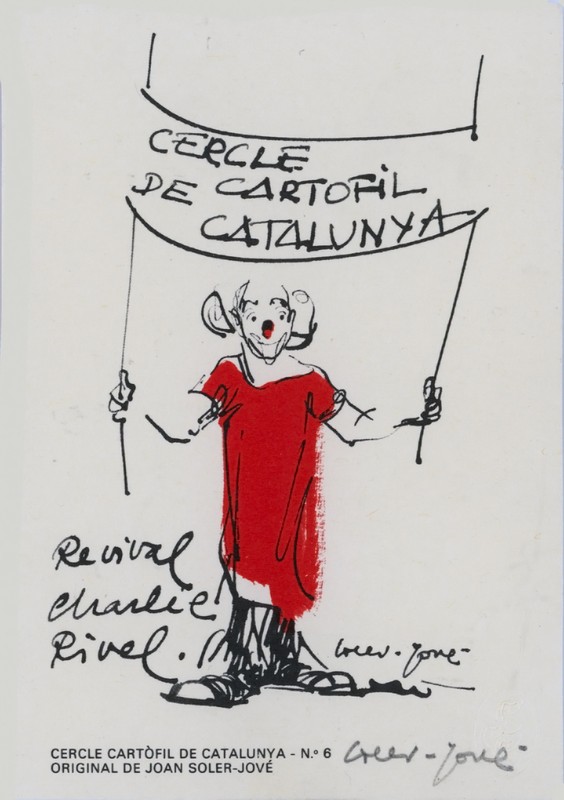 CERCLE
DE CARTOFIL
CATALUNYA
Revival
Charlie
Rivel.
Soler-Jové
CERCLE CARTÒFIL DE CATALUNYA - N.º 6
ORIGINAL DE JOAN SOLER-JOVÉ
Soler-Jové